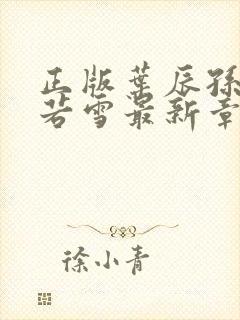 正版叶辰孙
若雪最新章
徐小青